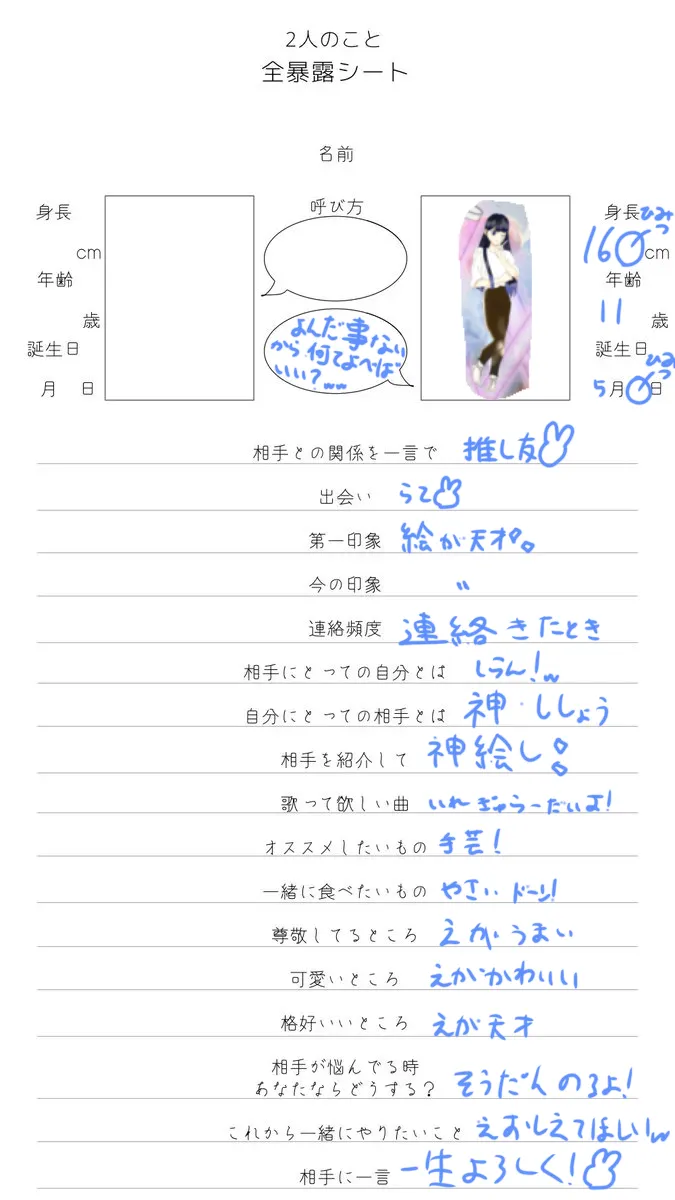 2人のこと
全暴露シート
名前
身長
cm
年齢
歳
誕生日
月 日
呼び方
よんだ事ない
から何てよべば
いい?ww
身長 ひみつ
160cm
年齢
11 歳
誕生日 ひみつ
5月 日
相手との関係を一言で 推し友
出会い らて
第一印象 絵が天才。
今の印象 〃
連絡頻度 連絡きたとき
相手にとっての自分とは しらん!w
自分にとっての相手とは 神・ししょう
相手を紹介して 神絵し!
歌って欲しい曲 いれぎゅらーだいよ!
オススメしたいもの 手芸!
一緒に食べたいもの やさいドーン!
尊敬してるところ えがうまい
可愛いところ えがかわいい
格好いいところ えが天才
相手が悩んでる時
あなたならどうする? そうだんのるよ!
これから一緒にやりたいこと えおしえてほしい!w
相手に一言 一生よろしく!